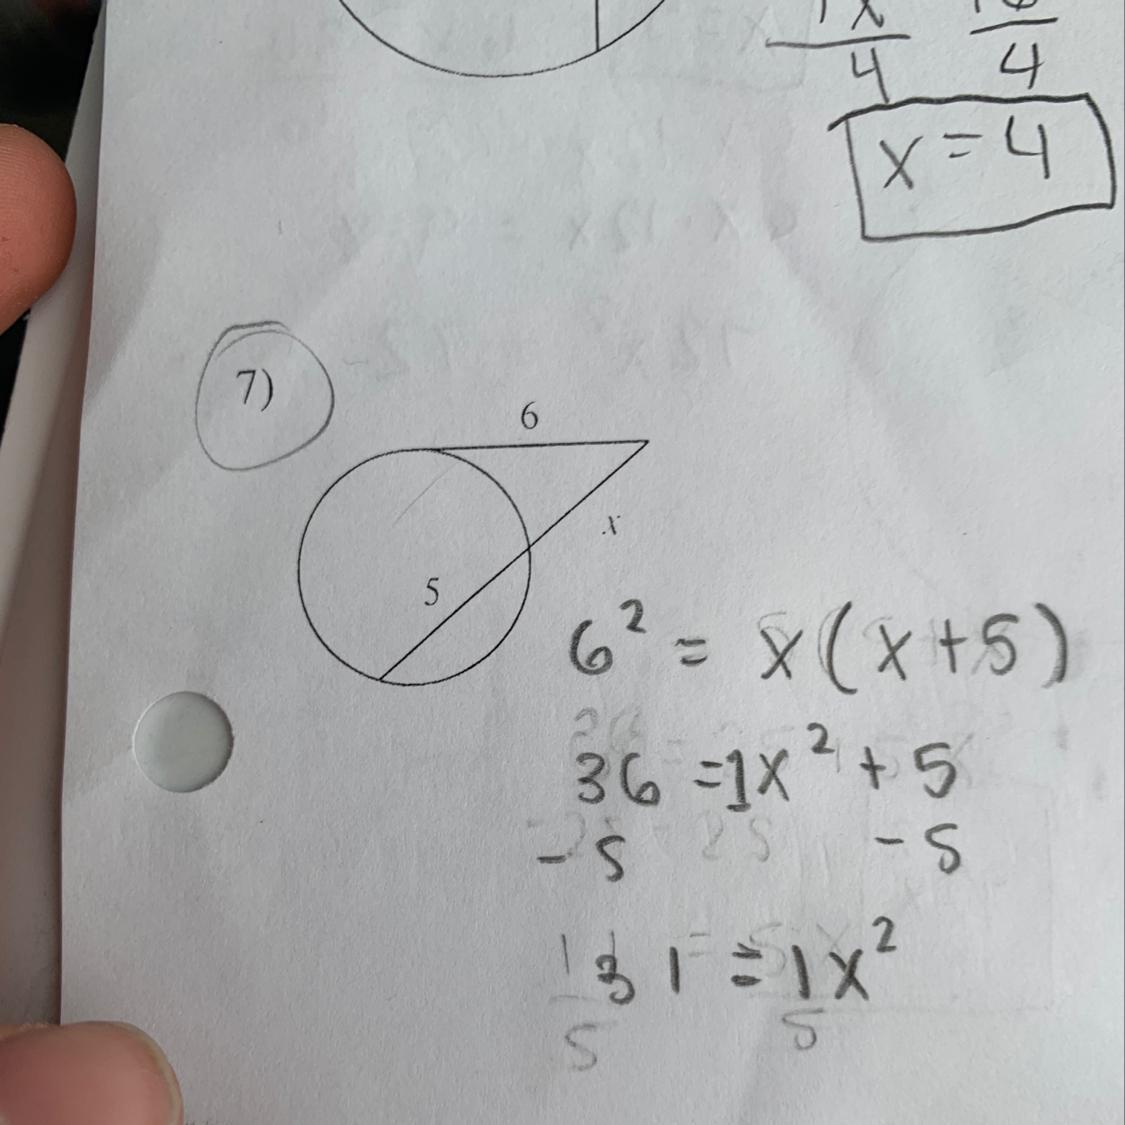 4 4
x = 4
7)
6
x
5
6² = x(x+5)
36 = 1x² + 5
- 5 - 5
31 = 1x²
5 5